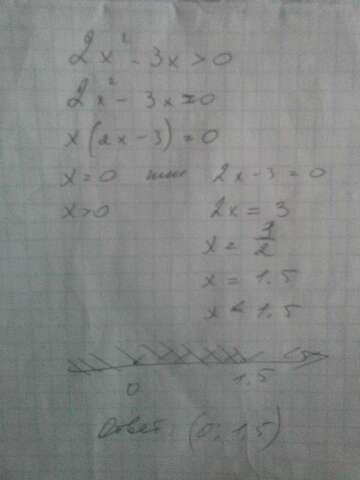 2x² - 3x > 0
2x² - 3x = 0
x(2x - 3) = 0
x = 0 или 2x - 3 = 0
x > 0 2x = 3
x = 3/2
x = 1.5
x < 1.5
0 1.5
Ответ: (0; 1,5)